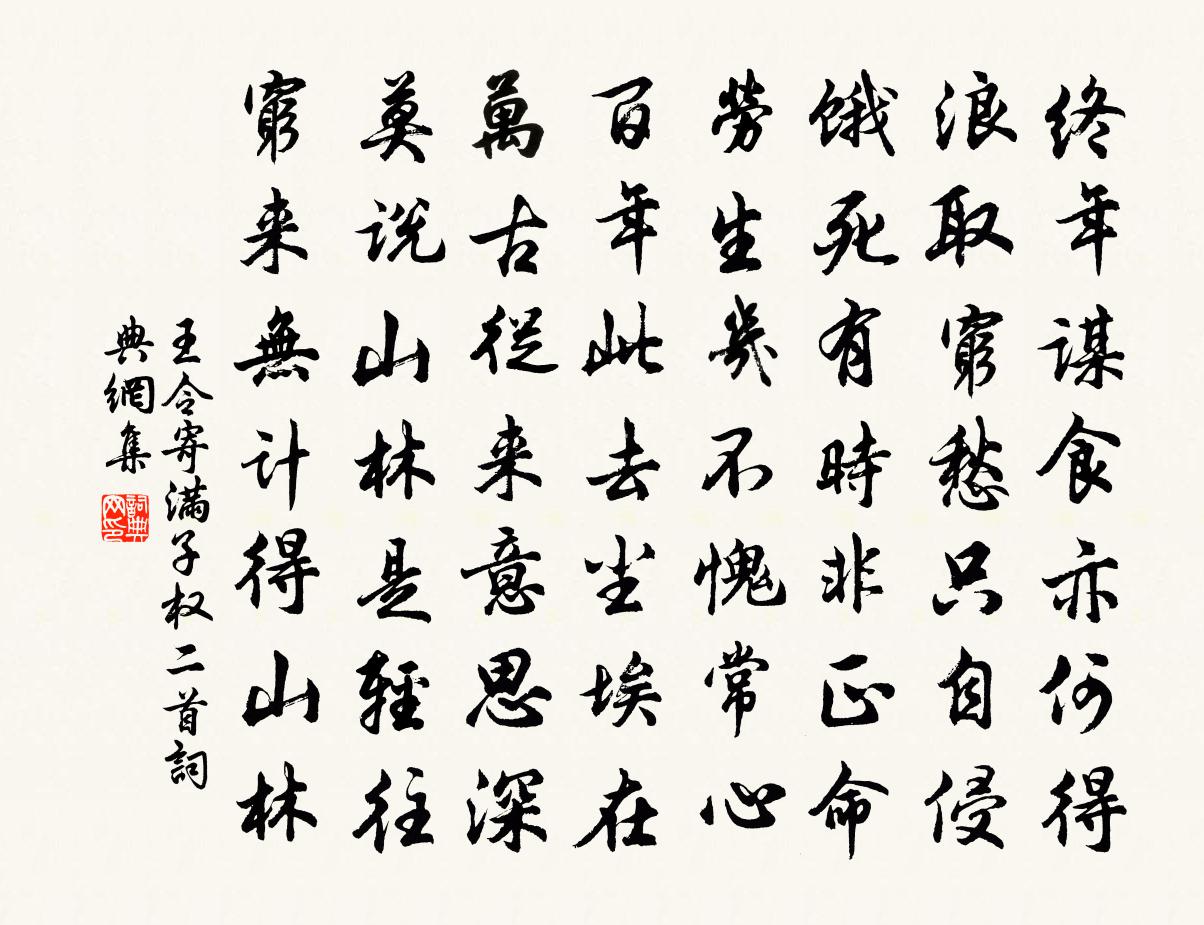 终年谋食亦何得
浪取窮愁只自侵
饿死有時非正命
劳生幾不愧常心
百年此去尘埃在
萬古從来意思深
莫说山林是輕往
窮来無计得山林
王令寄滿子权二首詞
典網集
詞典
网印